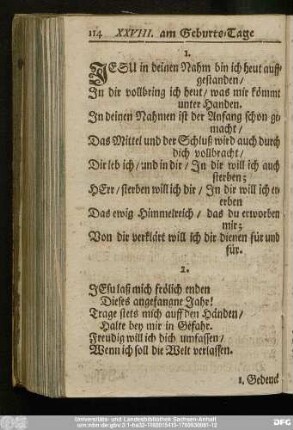 114 XXVIII. am Geburts-Tage
1.
JESU in deinen Nahm bin ich heut auff-
gestanden/
In dir vollbring ich heut/ was mir kömmt
unter Handen.
In deinen Nahmen ist der Anfang schon ge-
macht/
Das Mittel und der Schluß wird auch durch
dich vollbracht/
Dir leb ich/ und in dir/ In dir will ich auch
sterben;
HErr/ sterben will ich dir/ In dir will ich er-
erben
Das ewig Himmelreich/ das du erworben
mir;
Von dir verklärt will ich dir dienen für und
für.
2.
JEsu laß mich frölich enden
Dieses angefangne Jahr!
Trage stets mich auff den Händen/
Halte bey mir in Gefahr.
Freudig will ich dich umfassen/
Wenn ich soll die Welt verlassen.
1. Gedenck
Universitäts- und Landesbibliothek Sachsen-Anhalt